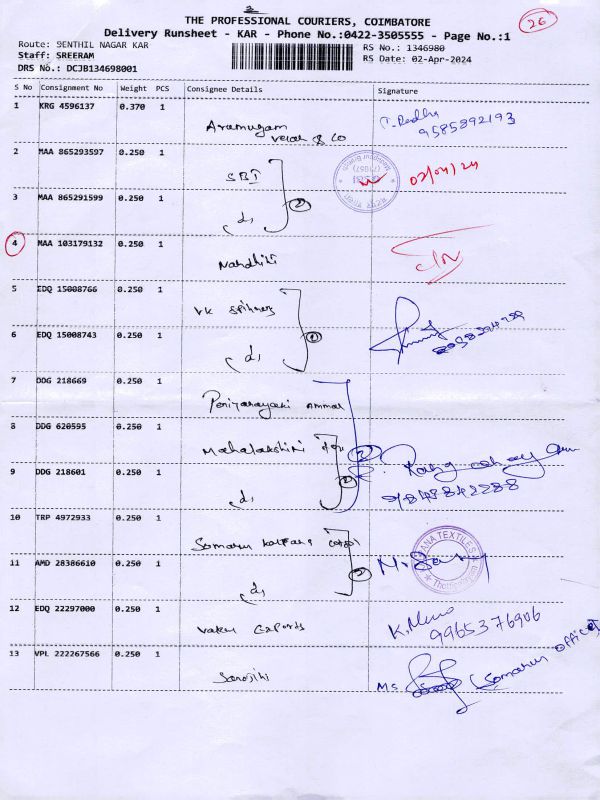 2
THE PROFESSIONAL COURIERS, COIMBATORE
26
Delivery Runsheet - KAR - Phone No.:0422-3505555 - Page No.:1
Route: 9ENTHIL NAGAR KAR
RS No.: 1346980
Staff: SREERAM
RS Date: 02-Apr-2024
DRS No.: DCJB134698001
S No Consignment No Weight PCS Consignee Details Signature
1 KRG 4596137 0.370 1
Arumugam
9585892193
2 MAA 865293597 0.250 1
SBI
02/04/24
3 MAA 865291599 0.250 1
d,
2
4 MAA 103179132 0.250 1
Nandhini
5 EDQ 15008766 0.250 1
VK
6 EDQ 15008743 0.250 1
d,
7 DDG 218669 0.250 1
Periyanayaki Ammal
8 DDG 620595 0.250 1
Mahalakshmi
9 DDG 218601 0.250 1
d,
9843842288
10 TRP 4972933 0.250 1
11 AMD 28386610 0.250 1
d,
2
12 EDQ 22297000 0.250 1
Exports
9965376906
13 VPL 222267566 0.250 1
Sarojini
Ms
office